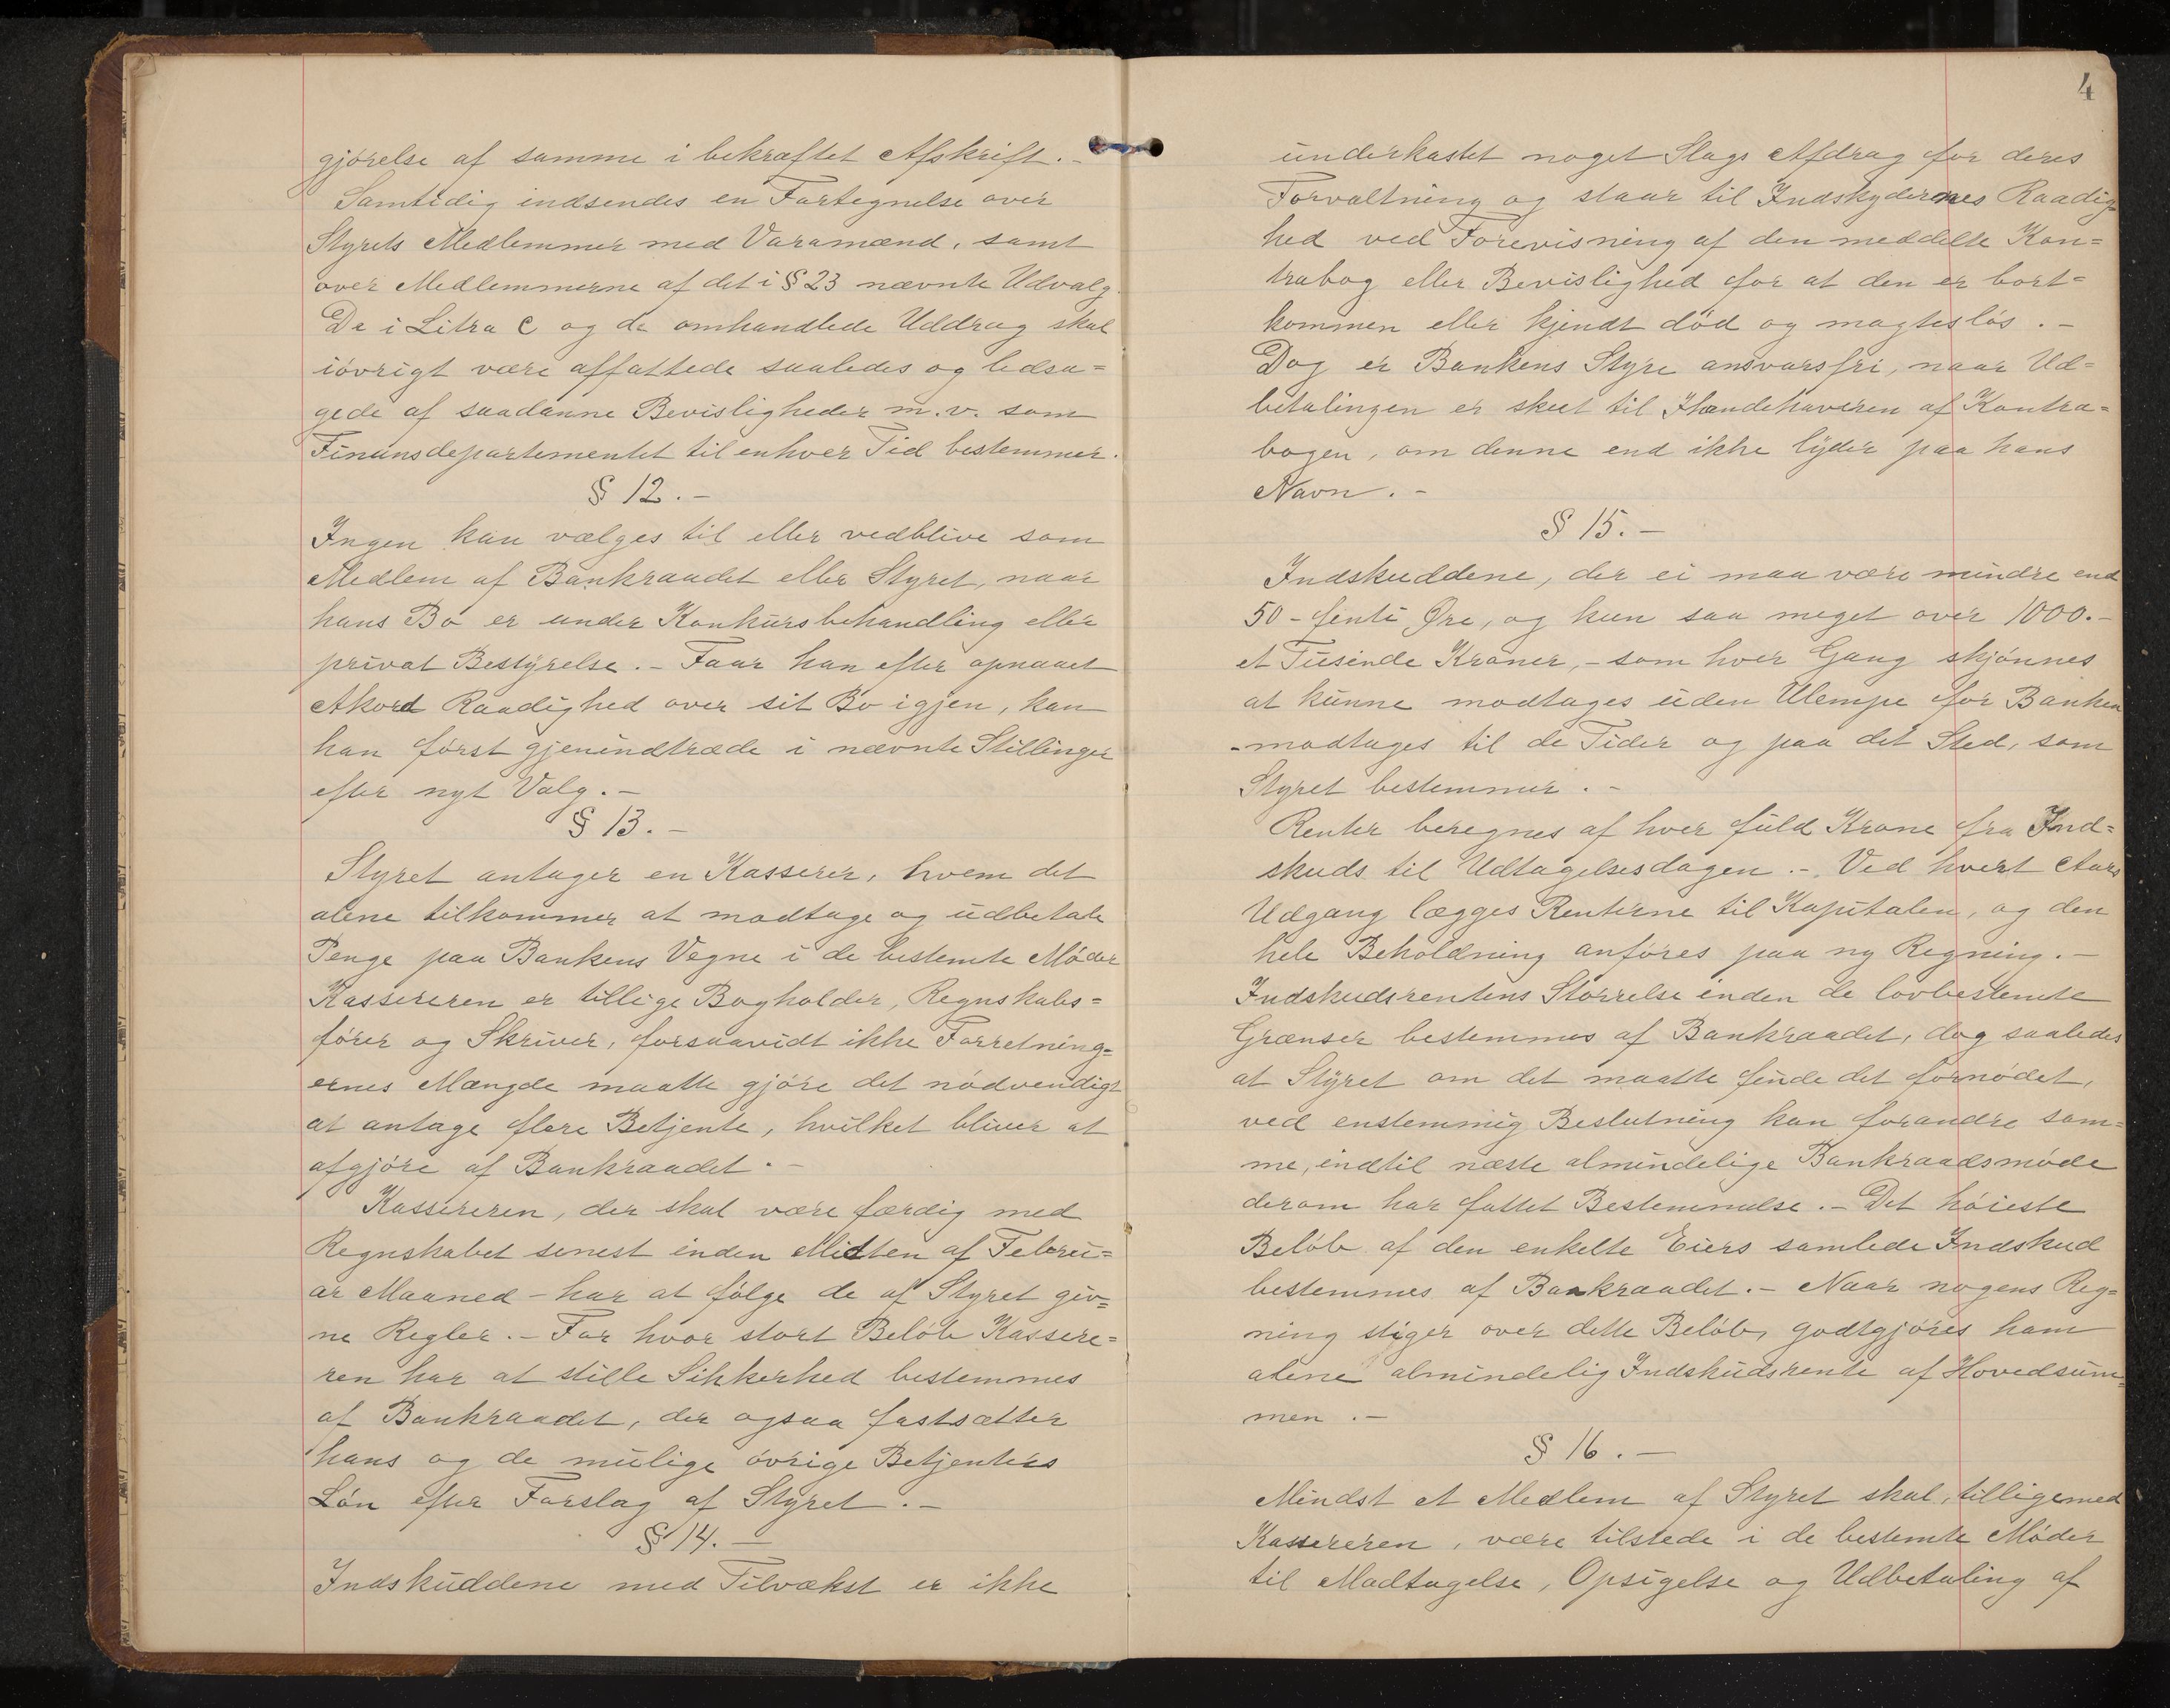 gjørelse af samme i bekræftet Afskrift.-
Samtidig indsendes en Fortegnelse over
Styrets Medlemmer med Varamænd, samt
over Medlemmerne af det i § 23 nævnte Udvalg.
De i Litra c og d omhandlede Uddrag skal
iøvrigt være affattede saaledes og ledsa=
gede af saadanne Bevisligheder m.v. som
Finansdepartementet til enhver Tid bestemmer.
§ 12.-
Ingen kan vælges til eller vedblive som
Medlem af Bankraadet eller Styret, naar
hans Bo er under Konkursbehandling eller
privat Bestyrelse.- Faar han efter opnaaet
Akord Raadighed over sit Bo igjen, kan
han først gjenindtræde i nævnte Stillinger
efter nyt Valg.-
§ 13.-
Styret antager en Kasserer, hvem det
alene tilkommer at modtage og udbetale
Penge paa Bankens Vegne i de bestemte Møder
Kassereren er tillige Bogholder, Regnskabs=
fører og Skriver, forsaavidt ikke Forretning=
ernes Mængde maatte gjøre det nødvendigt
at antage flere Betjente, hvilket bliver at
afgjøre af Bankraadet.-
Kassereren, der skal være færdig med
Regnskabet senest inden Midten af Febru=
ar Maaned - har at følge de af Styret giv=
ne Regler.- For hvor stort Beløb Kassere=
ren har at stille Sikkerhed bestemmes
af Bankraadet, der ogsaa fastsætter
hans og de mulige øvrige Betjenters
Løn efter Forslag af Styret.-
§ 14.-
Indskuddene med Tilvækst er ikke
4
underkastet noget Slags Afdrag for deres
Forvaltning og staar til Indskydernes Raadig=
hed ved Forevisning af den meddelte Kon=
trabog eller Bevislighed for at den er bort=
kommen eller kjendt død og magtesløs.-
Dog er Bankens Styre ansvarsfri, naar Ud=
betalingen er skeet til Ihændehaveren af Kontra=
bogen, om denne end ikke lyder paa hans
Navn.-
§ 15.-
Indskuddene, der ei maa være mindre end
50 - femti Øre, og kun saa meget over 1000.-
et Tusinde Kroner, - som hver Gang skjønnes
at kunne modtages uden Ulempe for Banken
- modtages til de Tider og paa det Sted, som
Styret bestemmer.-
Renter beregnes af hver fuld Krone fra Ind=
skuds til Udtagelsesdagen.- Ved hvert Aars
Udgang lægges Renterne til Kapitalen, og den
hele Beholdning anføres paa ny Regning.-
Indskudsrentens Størrelse inden de lovbestemte
Grænser bestemmes af Bankraadet, dog saaledes
at Styret om det maatte finde det fornødet,
ved enstemmig Beslutning kan forandre sam=
me, indtil næste almindelige Bankraadsmøde
derom har fattet Bestemmelse.- Det høieste
Beløb af den enkelte Eiers samlede Indskud
bestemmes af Bankraadet.- Naar nogens Reg=
ning stiger over dette Beløb, godtgjøres ham
alene almindelig Indskudsrente af Hovedsum=
men.-
§ 16.-
Mindst et Medlem af Styret skal, tilligemed
Kassereren, være tilstede i de bestemte Møder
til Modtagelse, Opsigelse og Udbetaling af